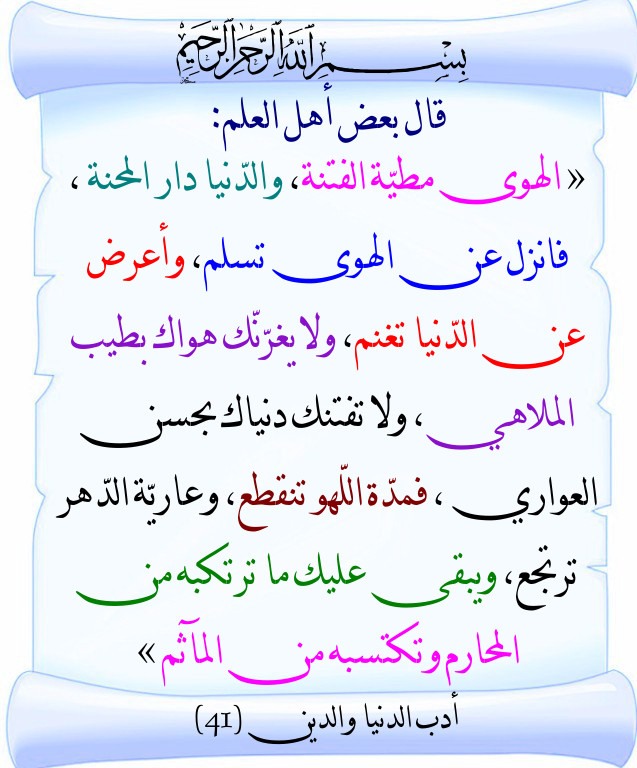 بسم الله الرحمن الرحيم
قال بعض أهل العلم:
« الهوى مطيّة الفتنة، والدّنيا دار المحنة ،
فانزل عن الهوى تسلم، وأعرض
عن الدّنيا تغنم، ولا يغرّنّك هواك بطيب
الملاهي ، ولا تفتنك دنياك بحسن
العواري ، فمدّة اللّهو تنقطع، وعاريّة الدّهر
ترتجع، ويبقى عليك ما ترتكبه من
المحارم وتكتسبه من المآثم »
أدب الدنيا والدين (41)